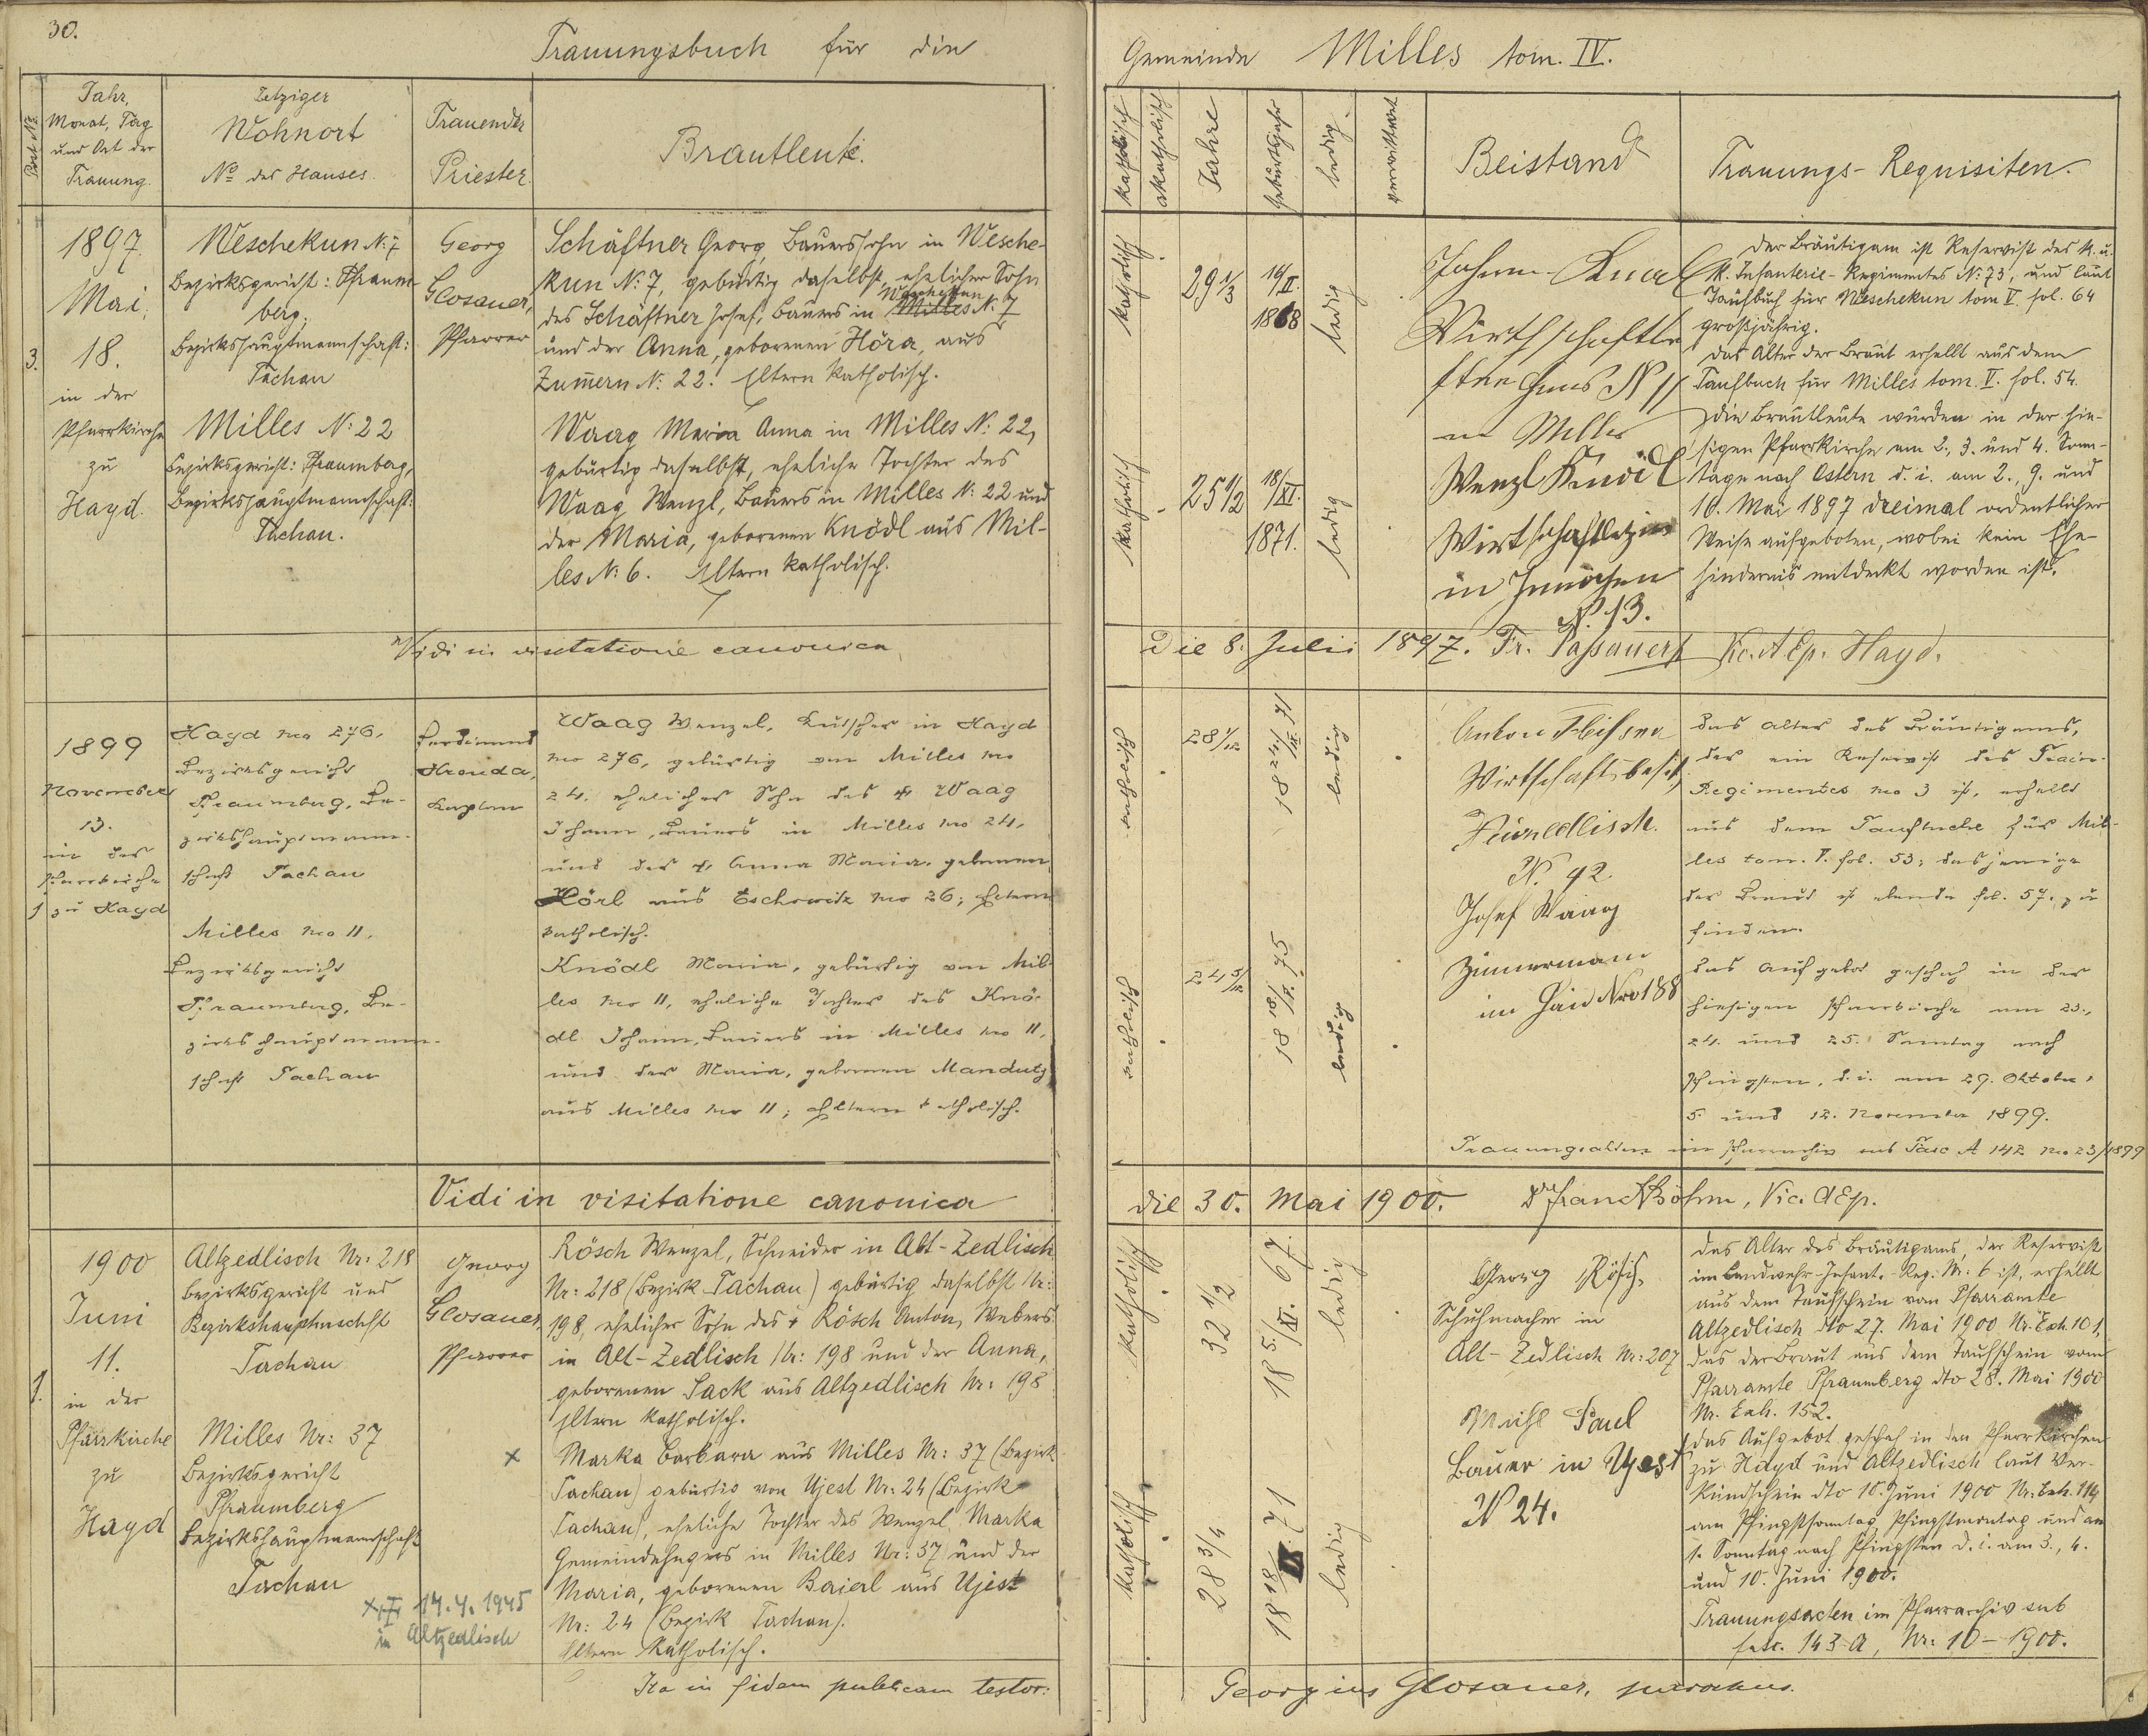 30.
Trauungsbuch für die
Post No.
Jahr,
Monat, Tag
und Ort der
Trauung.
Jetziger
Wohnort
No des Hauses.
Trauender
Priester.
Brautleute.
3.
1897.
Mai,
18.
in der
Pfarrkirche
zu
Hayd.
Weschekun N: 7
Bezirksgericht: Pfraum-
berg,
Bezirkshauptmannschaft:
Tachau
Milles N: 22
Bezirksgericht: Pfraumberg,
Bezirkshauptmannschaft:
Tachau.
Georg
Glosauer,
Pfarrer
Schäftner Georg, Bauerssohn in Wesche-
kun N: 7, gebürtig daselbst, ehelicher Sohn
Weschekun
des Schäftner Josef, Bauers in Milles N: 7
und der Anna, geborenen Höra, aus
Zummern N: 22. Eltern katholisch.
Waag Maria Anna in Milles N: 22,
gebürtig daselbst, eheliche Tochter des
Waag Wenzl, Bauers in Milles N: 22 und
der Maria, geborenen Knödl aus Mil-
les N: 6. Eltern katholisch.
Vidi in visitatione canonica
1
1899
November
13.
in der
Pfarrkirche
zu Hayd
Hayd no 276,
Bezirksgericht
Pfraumberg, Be-
zirkshauptmann-
schaft Tachau
Milles no 11,
Bezirksgericht
Pfraumberg, Be-
zirkshauptmann-
schaft Tachau
Ferdinand
Hronda,
Kaplan
Waag Wenzel, Kutscher in Hayd
no 276, gebürtig von Milles no
24, ehelicher Sohn des † Waag
Johann, Bauers in Milles no 24,
und der † Anna Maria, gebornen
Hörl aus Eschowitz no 26; Eltern
katholisch.
Knödl Maria, gebürtig von Mil-
les no 11, eheliche Tochter des Knö-
dl Johann, Bauers in Milles no 11,
und der Maria, gebornen Mandutz
aus Milles no 11; Eltern katholisch.
Vidi in visitatione canonica
1.
1900
Juni
11.
in der
Pfarrkirche
zu
Hayd
Altzedlisch Nr: 218
Bezirksgericht und
Bezirkshauptmschft
Tachau
Milles Nr: 37
Bezirksgericht
Pfraumberg
Bezirkshauptmannschaft
Tachau
Georg
Glosauer,
Pfarrer
x
14.4.1945
in Altzedlisch
Rösch Wenzel, Schneider in Alt-Zedlisch
Nr: 218 (Bezirk Tachau) gebürtig daselbst Nr:
198, ehelicher Sohn des † Rösch Anton, Webers
in Alt-Zedlisch Nr: 198 und der Anna,
geborenen Sack aus Altzedlisch Nr: 198
Eltern katholisch.
Marka Barbara aus Milles Nr: 37 (Bezirk
Tachau) gebürtig von Ujest Nr: 24 (Bezirk
Tachau), eheliche Tochter des Wenzel Marka
Gemeindehegers in Milles Nr: 37 und der
Maria, geborenen Baierl aus Ujest
Nr: 24 (Bezirk Tachau).
Eltern katholisch.
Ita in fidem publicam testor:
Gemeinde Milles tom. IV.
katholisch
akatholisch
Jahre
Geburtsjahr
ledig.
verwittwet
Beistand
Trauungs-Requisiten.
katholisch
29 1/3
14/II.
1868
ledig
katholisch
25 1/2
18/XI.
1871.
ledig
Johann Knödl
Wirthschafts
haus N 11
in Milles
Wenzl Knödl
in
N. 13.
Der Bräutigam ist Reservist des k. u.
k. Infanterie-Regimentes N: 73, und laut
Taufbuch für Weschekun tom V. fol. 64
großjährig.
Das Alter der Braut erhellt aus dem
Taufbuch für Milles tom. V. fol. 54.
Die Brautleute wurden in der hie-
sigen Pfarrkirche am 2., 3. und 4. Sonn-
tage nach Ostern d. i. am 2., 9. und
16. Mai 1897 dreimal ordentlicher
Weise aufgeboten, wobei kein Ehe-
hindernis entdeckt worden ist.
Die 8. Julii 1897. Fr. Passauer Vic. AEp. Hayd.
katholisch
28 1/12
ledig
katholisch
24 5/12
ledig
Anton
Wirtschaftsbesitz
N. 92.
Josef Waag
Zimmermann
in Haid Nro 188
das Alter des Bräutigams,
der ein Reservist des Train-
Regimentes no 3 ist, erhellt
aus dem Taufbuche für Mil-
les tom. V. fol. 53; dasjenige
der Braut ist ebenda fol. 57. zu
finden.
das Aufgebot geschah in der
hiesigen Pfarrkirche am 23.,
24. und 25. Sonntag nach
Pfingsten, d. i. am 29. Oktober,
5. und 12. November 1899.
Trauungsakten im Pfarrarchiv sub Fasc A 142 no 23/1899
die 30. Mai 1900. Dr Franc Böhm, Vic. AEp.
katholisch
32 1/2
18 5./XI. 67.
ledig
katholisch
28 3/4
ledig
Georg Rösch,
Schuhmacher in
Alt-Zedlisch Nr: 207
Michl Paul
Bauer in Ujest
N 24.
Das Alter des Bräutigams, der Reservist
im Landwehr-Infant. Reg. Nr. 6 ist, erhellt
aus dem Taufschein vom Pfarramte
Altzedlisch dto 27. Mai 1900 Nr. Exh. 101,
das der Braut aus dem Taufschein vom
Pfarramte Pfraumberg dto 28. Mai 1900
Nr. Exh. 152.
Das Aufgebot geschah in den Pfarrkirchen
zu Hayd und Altzedlisch laut Ver-
kündschein dto 10. Juni 1900 Nr: Exh. 114
am Pfingstsonntag, Pfingstmontag und am
1. Sonntag nach Pfingsten d. i. am 3., 4.
und 10. Juni 1900.
Trauungsacten im Pfarrarchiv sub
fasc. 143 A, Nr: 10 - 1900.
Georgius Glosauer, parochus.